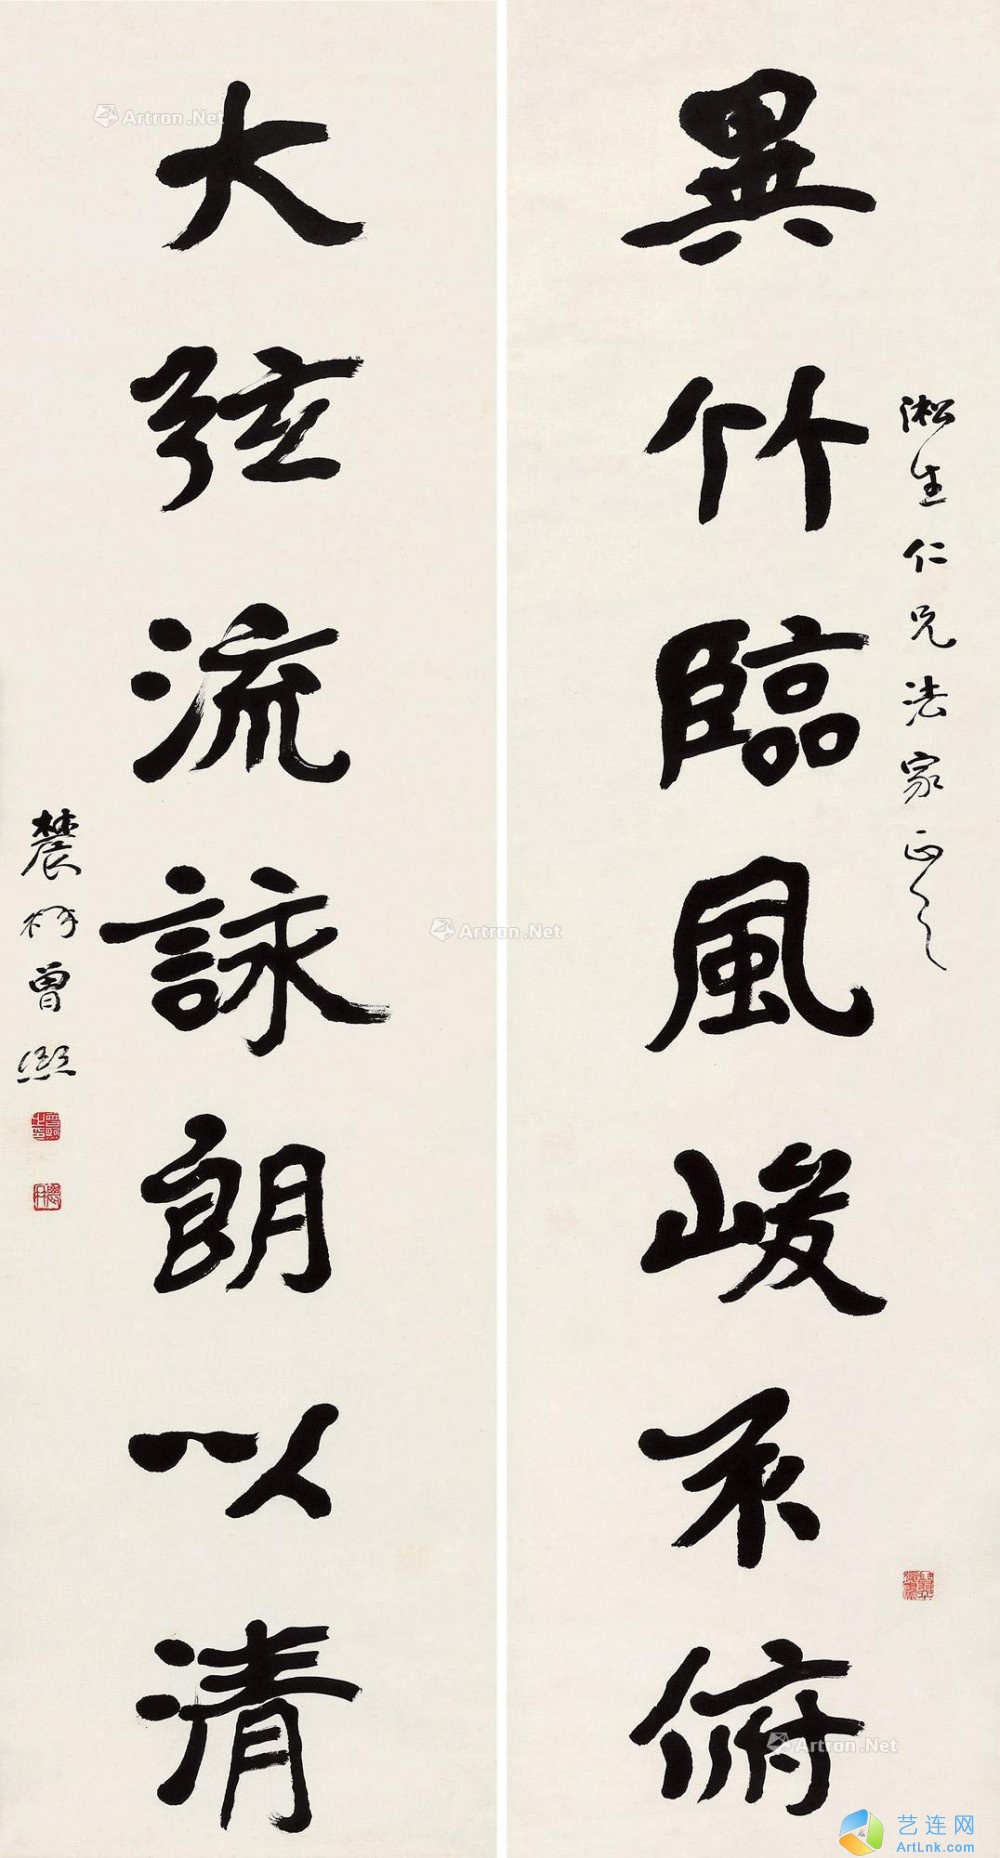 淞生仁兄法家正之
異竹臨風峻不俯
大弦流詠朗以清
農髯曾熙
Artron.Net
Artron.Net
Artron.Net
艺连网
ArtLnk.com